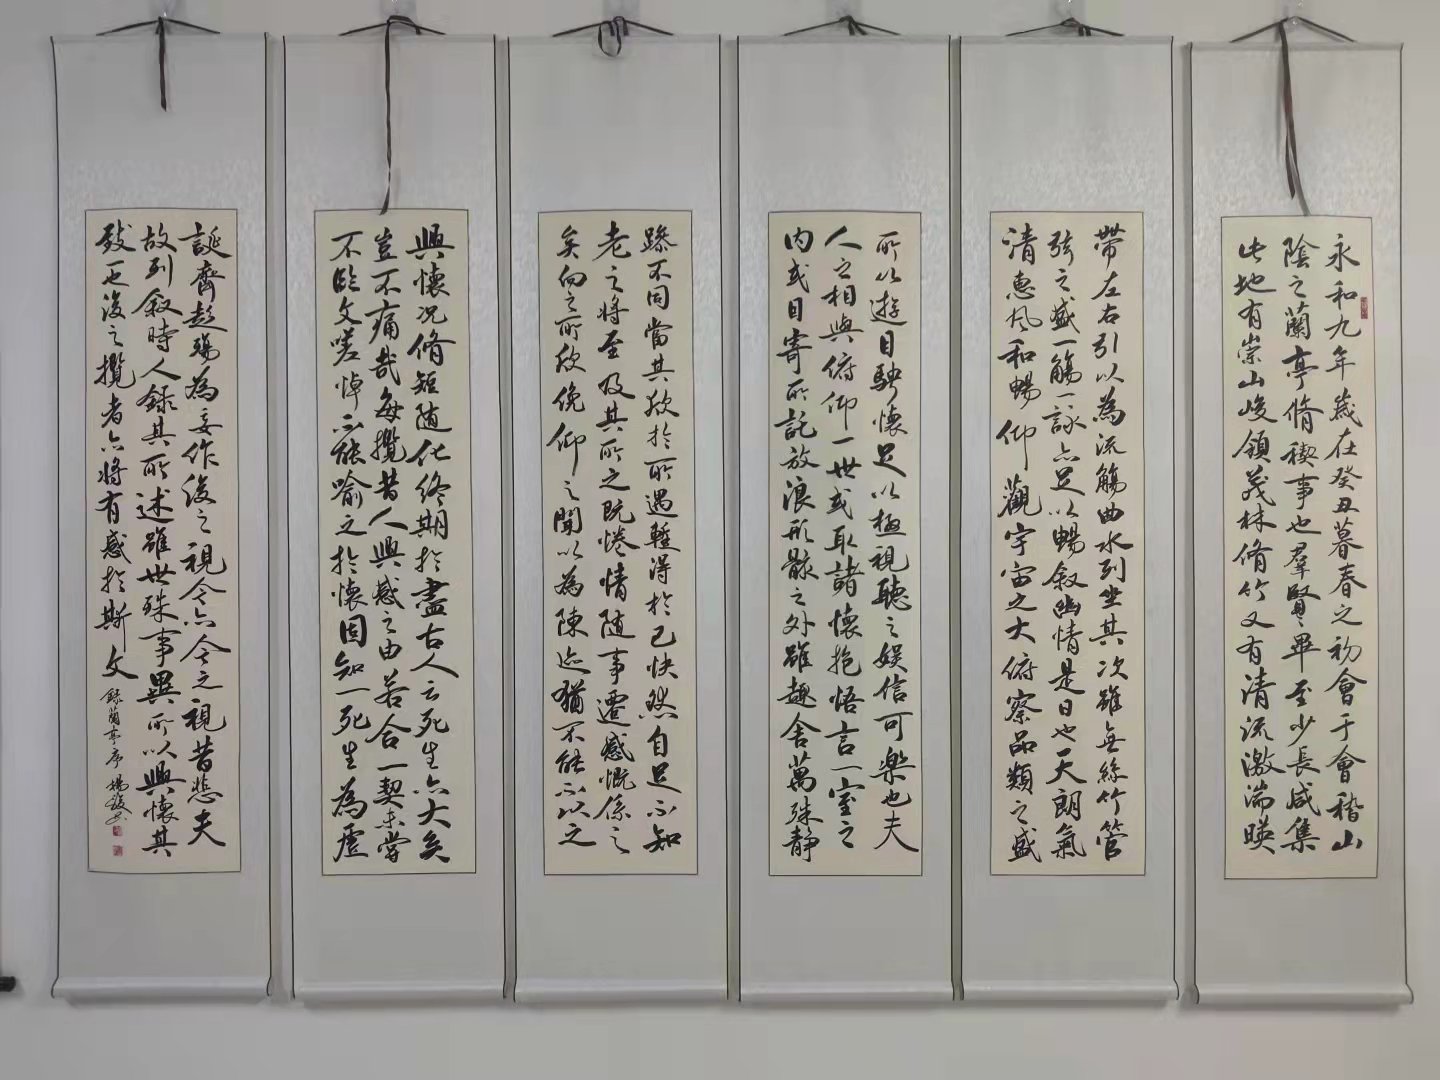 永和九年歲在癸丑暮春之初會于會稽山
陰之蘭亭脩稧事也群賢畢至少長咸集
此地有崇山峻領茂林脩竹又有清流激湍暎
帶左右引以為流觴曲水列坐其次雖無絲竹管
弦之盛一觴一詠亦足以暢敘幽情是日也天朗氣
清惠風和暢仰觀宇宙之大俯察品類之盛
所以遊目騁懷足以極視聽之娛信可樂也夫
人之相與俯仰一世或取諸懷抱悟言一室之
內或因寄所託放浪形骸之外雖趣舍萬殊靜
躁不同當其欣於所遇蹔得於己快然自足不知
老之將至及其所之既惓情隨事遷感慨係之
矣向之所欣俛仰之間以為陳迹猶不能不以之
興懷況脩短隨化終期於盡古人云死生亦大矣
豈不痛哉每攬昔人興感之由若合一契未嘗
不臨文嗟悼不能喻之於懷固知一死生為虛
誕齊彭殤為妄作後之視今亦今之視昔悲夫
故列敘時人錄其所述雖世殊事異所以興懷其
致一也後之攬者亦將有感於斯文
錄蘭亭序